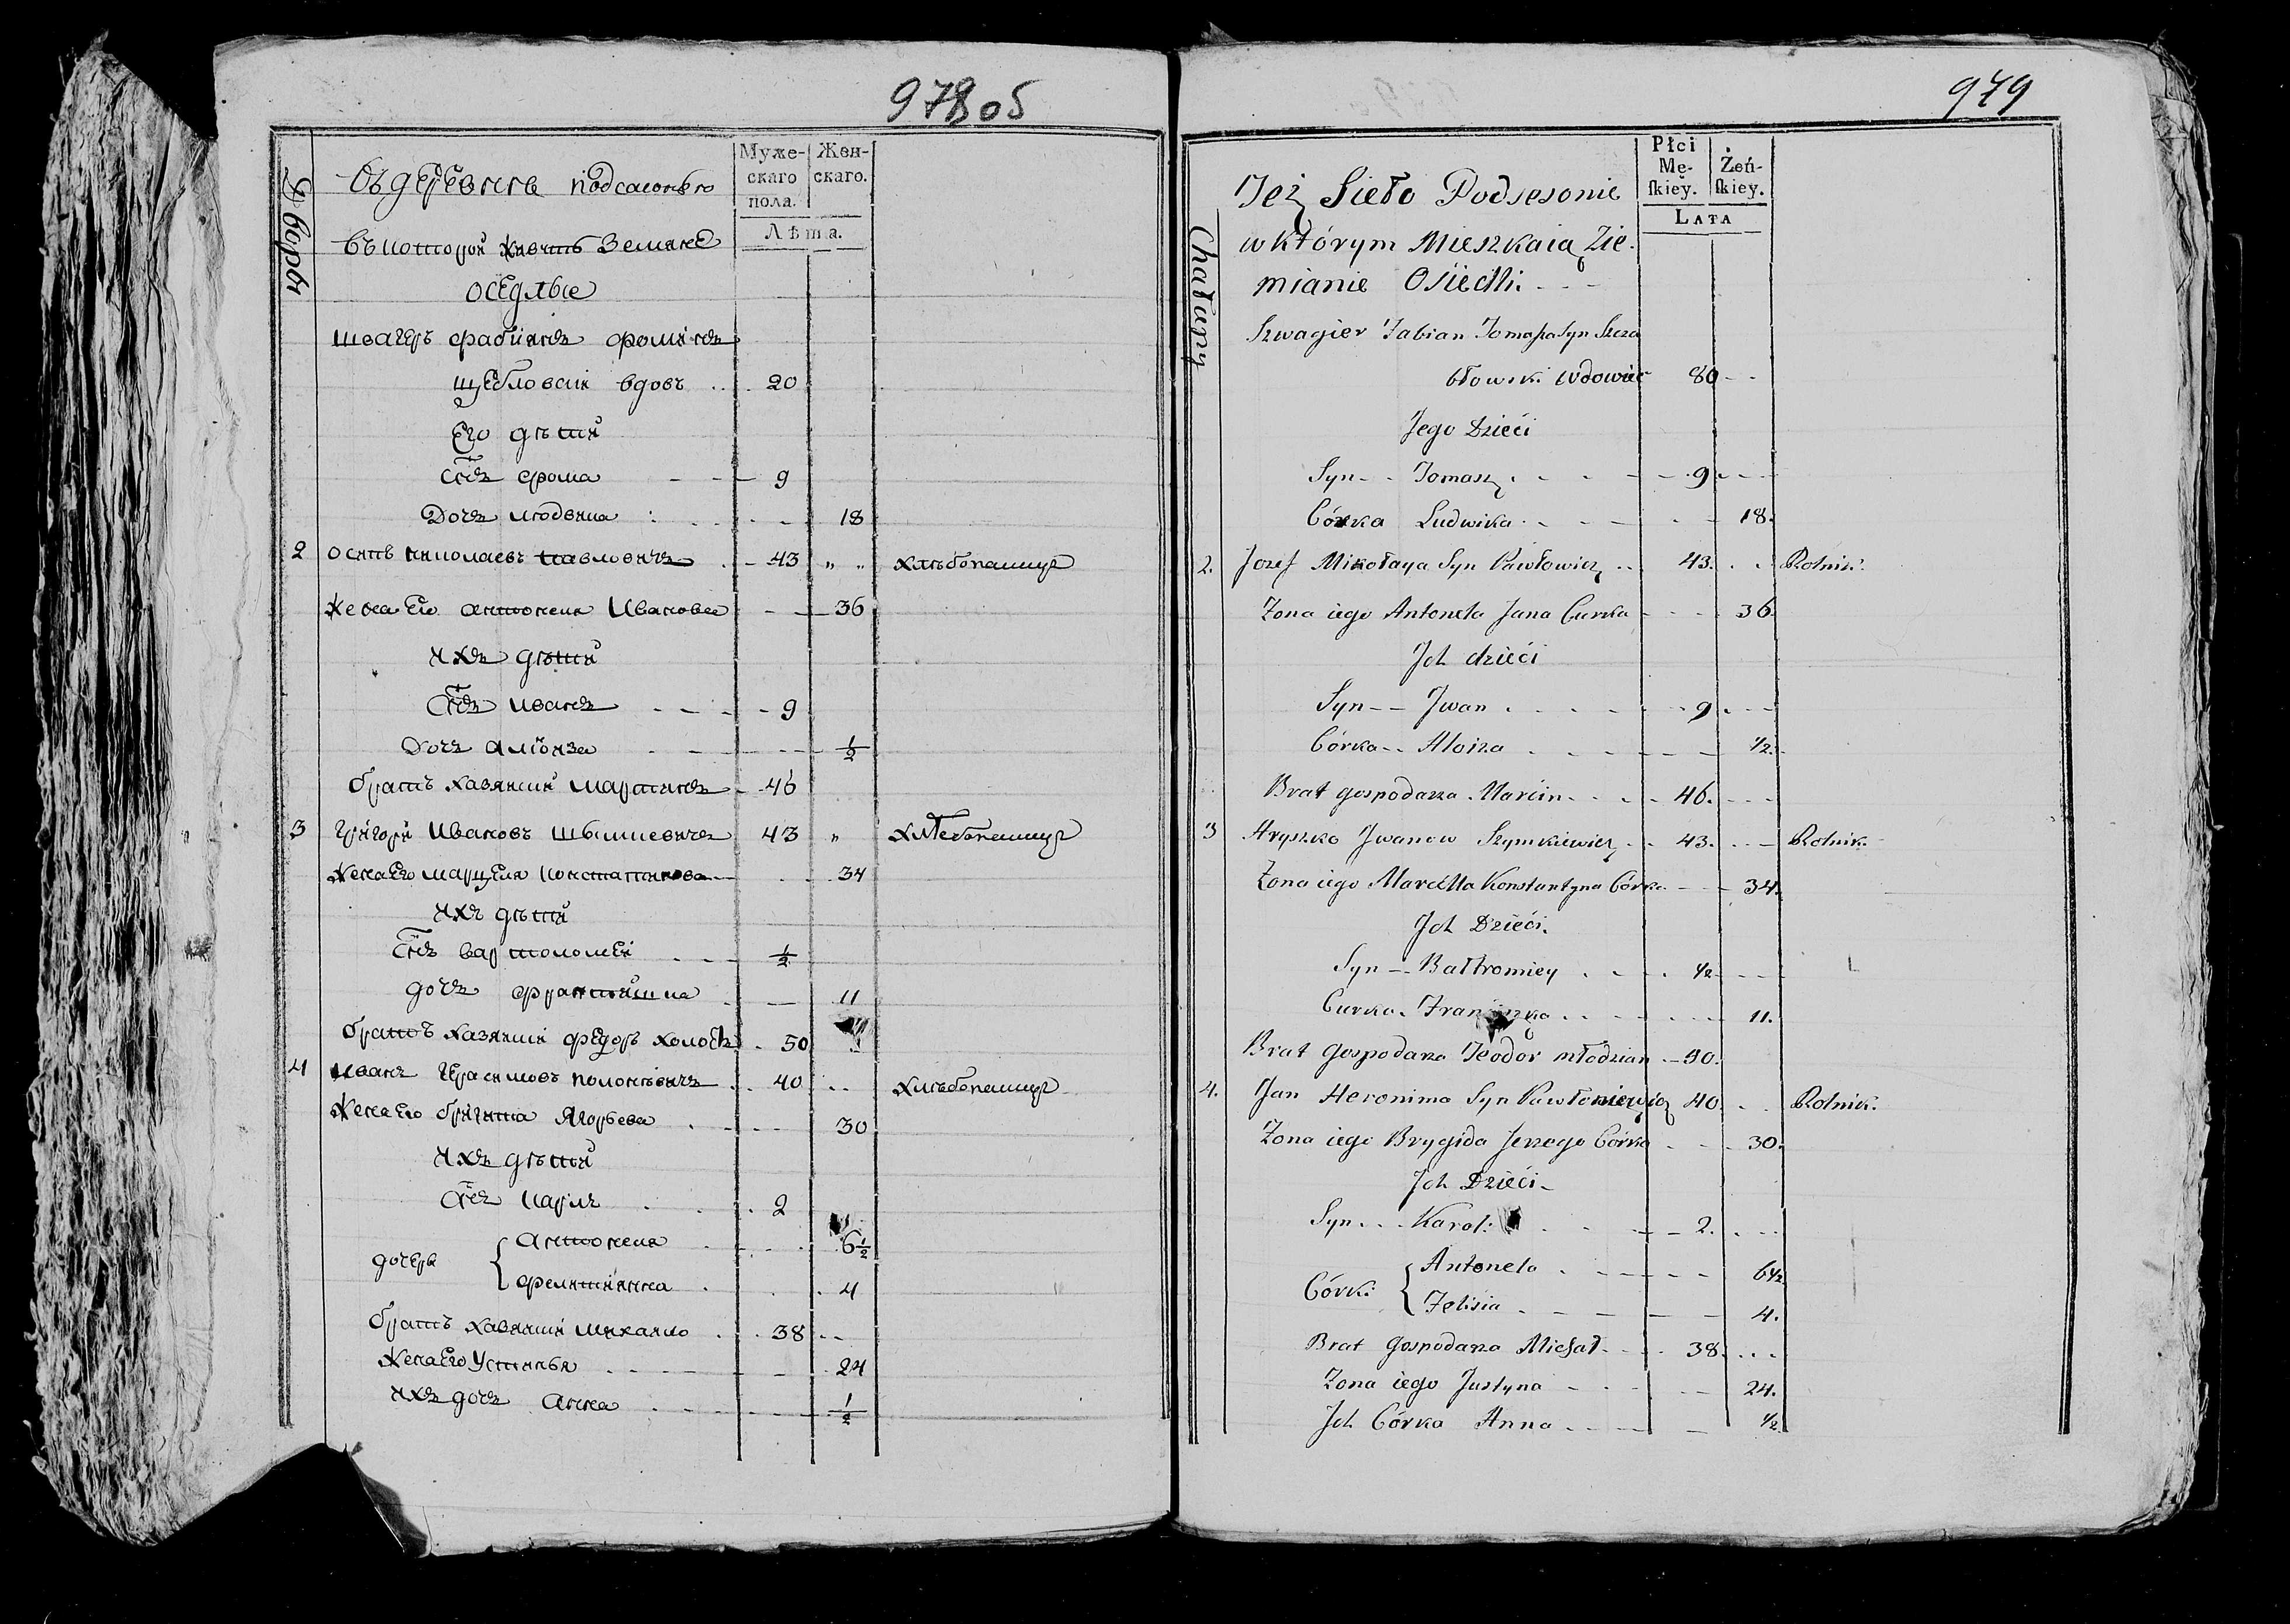 978 об
Дворы
Муже-
скаго
пола.
Жен-
скаго.
Лѣта.
въ которой живутъ Земяне
оседлые
швагеръ фабіянъ фоминъ
вдовъ 20
Его дѣти
снъ фома 9
Дочь людвика 18
2 осипъ николаевъ павловичъ 43 хлѣбопашецъ
жена Его антонела Иванова 36
ихъ дѣти
снъ иванъ 9
Дочь алюиза 1/2
братъ хазяинй мартинъ 46
3 григорй Ивановъ шымкевичъ 43 „ хлебопашецъ
жена Его марцеля константинова 34
ихъ дѣти
снъ вартоломей 1/2
дочь францишка 11
братъ хазяинй федоръ холостъ 50
4 иванъ Герасимовъ 40 хлѣбопашецъ
жена Его бригита Ягорьева 30
ихъ дѣти
снъ карлъ 2
дочери { антонела 6 1/2
фелитиянна 4
братъ хазяинй михаило 38
жена Его Устинья 24
ихъ дочь анна 1/2
979
Chałupy
Płci
Mę-
skiey.
Żeń-
skiey.
LATA
Też Sieło Podsesonie
w którym Mieszkaią Zie-
mianie Osiedli
Szwagier Fabian Tomasza Syn Szcza
błowski wdowiec 80
Jego Dzieci
Syn Tomasz 9
Córka Ludwika 18.
2. Jozef Mikołaya Syn Pawłowicz 43. Rolnik.
Żona iego Antonela Jana Curka 36.
Ich dzieci
Syn Jwan 9
Córka Aloiza 1/2
Brat gospodarza Marcin 46.
3 Hryszko Jwanow Szymkiewicz 43. Rolnik.
Żona iego Marcella Konstantyna Córka 34.
Ich Dzieci.
Syn Bałtromiey 1/2
Curka Franciszka 11.
Brat Gospodarza Teodor młodzian 50.
4. Jan Heronima Syn Pawłoniewicz 40. Rolnik.
Żona iego Brygida Jerzego Córka 30.
Ich Dzieci
Syn Karol 2.
Córki { Antonela 6 1/2
Felisia 4.
Brat Gospodarza Michał 38.
Żona iego Justyna 24.
Ich Córka Anna 1/2